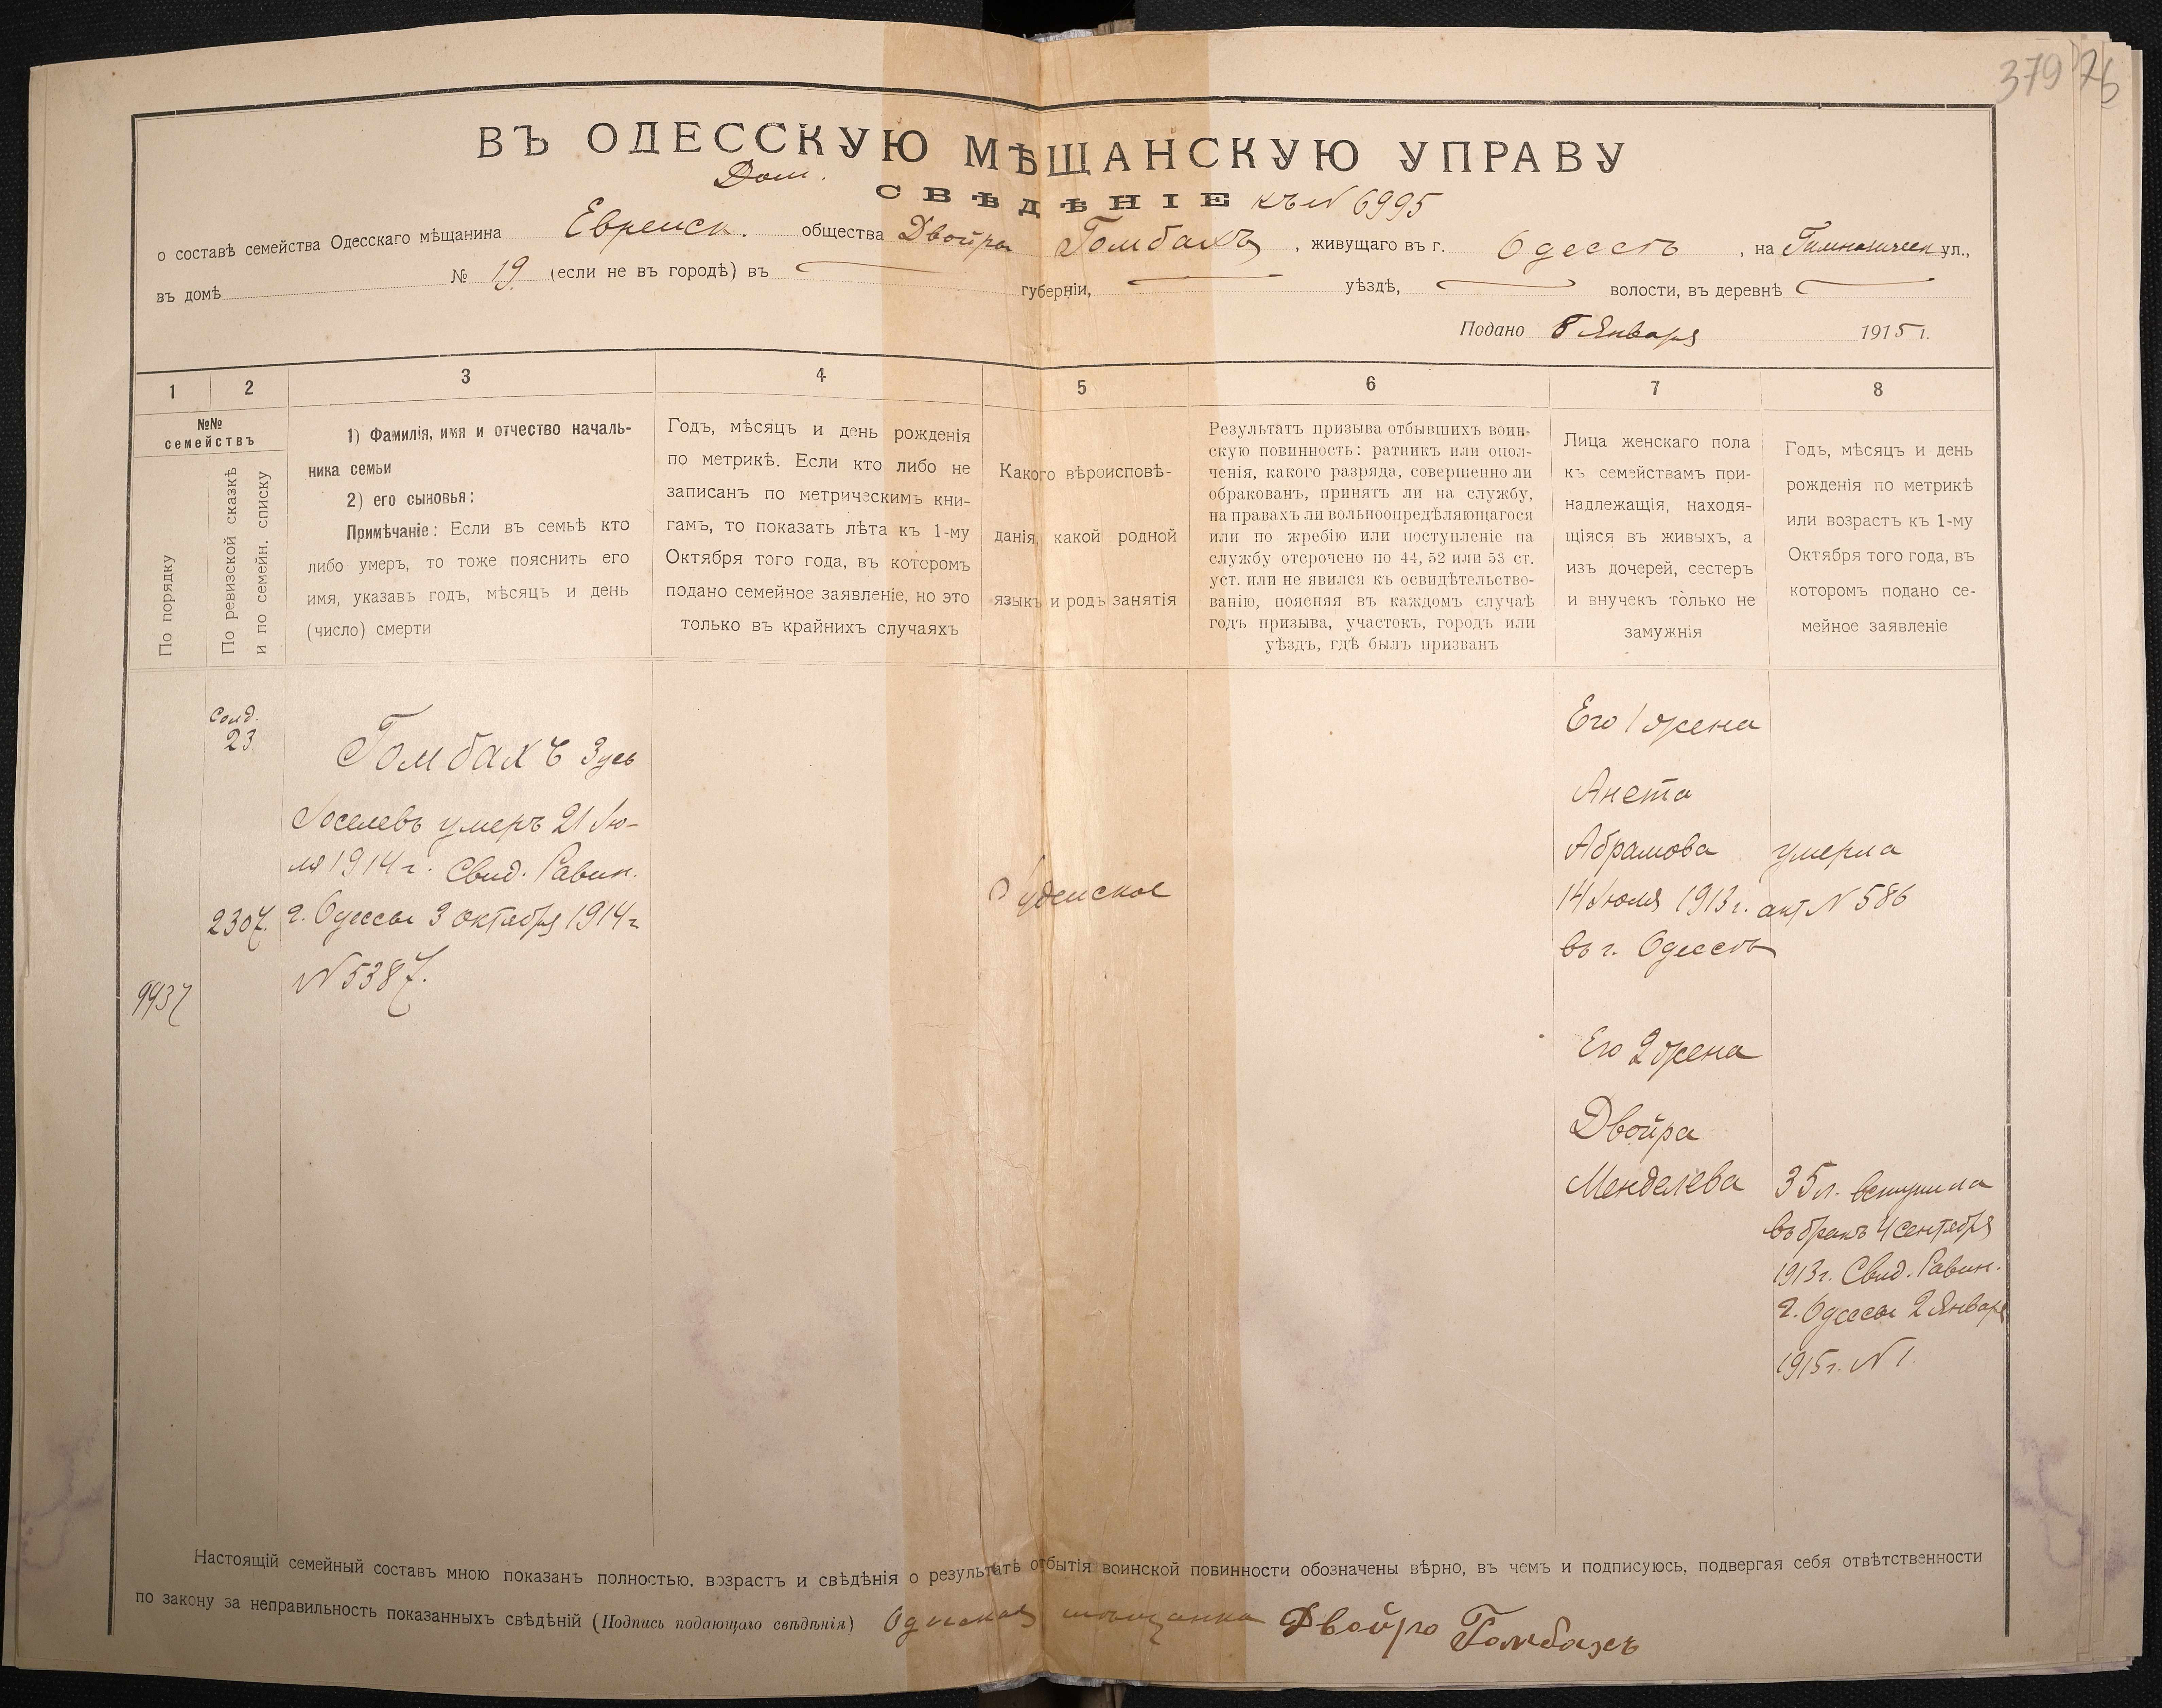 379 76
ВЪ ОДЕССКУЮ МѢЩАНСКУЮ УПРАВУ
Доп.
СВѢДѢНІЕ къ № 6995
о составѣ семейства Одесскаго мѣщанина Еврейск. общества Двойра Гомбахъ, живущаго въ г. Одессѣ, на Гимназическ ул.,
въ домѣ № 19. (если не въ городѣ) въ губерніи, уѣздѣ, волости, въ деревнѣ
Подано 8 Января 1915 г.
1 2 3 4 5 6 7 8
№№
семействъ
По порядку
По ревизской сказкѣ
и по семейн. списку
1) Фамилія, имя и отчество началь-
ника семьи
2) его сыновья:
Примѣчаніе: Если въ семьѣ кто
либо умеръ, то тоже пояснить его
имя, указавъ годъ, мѣсяцъ и день
(число) смерти
Годъ, мѣсяцъ и день рожденія
по метрикѣ. Если кто либо не
записанъ по метрическимъ кни-
гамъ, то показать лѣта къ 1-му
Октября того года, въ которомъ
подано семейное заявленіе, но это
только въ крайнихъ случаяхъ
Какого вѣроисповѣ-
данія, какой родной
языкъ и родъ занятія
Результатъ призыва отбывшихъ воин-
скую повинность: ратникъ или опол-
ченія, какого разряда, совершенно ли
обракованъ, принятъ ли на службу,
на правахъ ли вольноопредѣляющагося
или по жребію или поступленіе на
службу отсрочено по 44, 52 или 53 ст.
уст. или не явился къ освидѣтельство-
ванію, поясняя въ каждомъ случаѣ
годъ призыва, участокъ, городъ или
уѣздъ, гдѣ былъ призванъ
Лица женскаго пола
къ семействамъ при-
надлежащія, находя-
щіяся въ живыхъ, а
изъ дочерей, сестеръ
и внучекъ только не
замужнія
Годъ, мѣсяцъ и день
рожденія по метрикѣ
или возрастъ къ 1-му
Октября того года, въ
которомъ подано се-
мейное заявленіе
Солд.
23
2307.
9937
Гомбахъ Зусь
Іоселевъ умеръ 21 Ію-
ля 1914 г. Свид. Равин.
г. Одессы 3 октября 1914 г
№ 5387.
Іудейское
Его 1 жена
Анета
Абрамова умерла
14 Іюля 1913 г. акт № 586
въ г. Одессѣ
Его 2 жена
Двойра
Менделева 35 л. вступила
въ бракъ 4 сентября
1913 г. Свид. Равин.
г. Одессы 2 Января
1915 г. № 1.
Настоящій семейный составъ мною показанъ полностью, возрастъ и свѣдѣнія о результатѣ отбытія воинской повинности обозначены вѣрно, въ чемъ и подписуюсь, подвергая себя отвѣтственности
по закону за неправильность показанныхъ свѣдѣній (Подпись подающаго свѣдѣнія) Одесская мѣщанка Двойра Гомбахъ